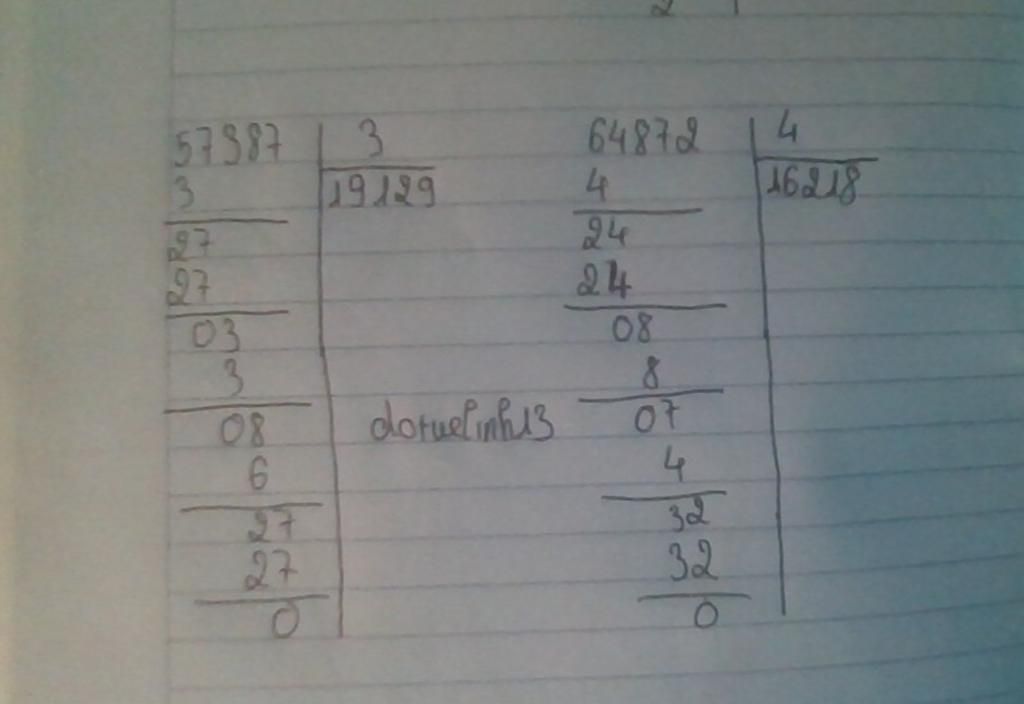 57387 3
3 19129
27
27
03
3
08
6
27
27
0
64872 4
4 16218
24
24
08
8
07
4
32
32
0